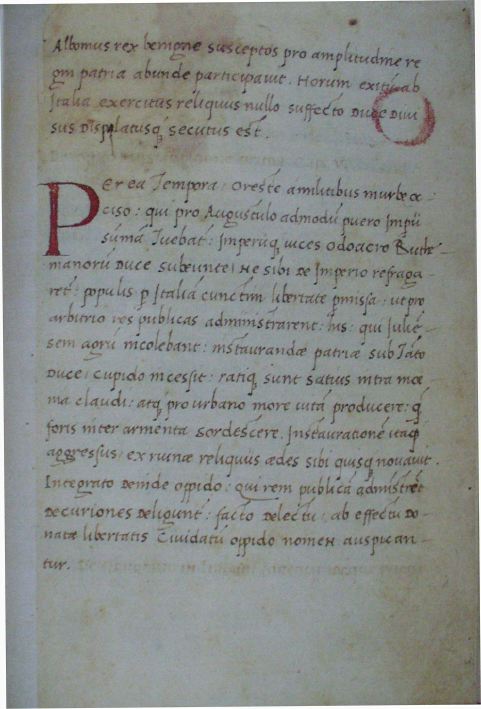 Alboinus rex benigne susceptos pro amplitudine re
gni patria abunde participauit. Horum exitū ab
Italia exercitus reliquus nullo suffecto Duce Diui
sus Dispalatusq; secutus est.
PEr ea Tempora, Oreste a militibus in urbe oc
ciso: qui pro Augustulo admodū puero Impii
sūma Tuebat: Imperiiq; uices Odoacro Ruthe
manorū Duce subeunte, Ne sibi de Imperio refraga-
ret: populis p Italiā cunctim libertate pmissa: ut pro
arbitrio res publicas administrarent: his: qui Iuliē-
sem agrū incolebant: instaurandæ patriæ sub Tāto
Duce, cupido incessit: ratiq; sunt satius intra moe
nia claudi: atq; pro urbano more uitā producere: q̄
foris inter armenta sordescere. Instaurationē itaq;
aggressus, ex ruinæ reliquiis ædes sibi quisq; nouauit.
Integrato deinde oppido: qui rem publicā admīstrēt
Decuriones Deligunt: facto Delectu, ab effectu Do-
natæ libertatis Ciuidatū oppido nomen auspican-
tur.